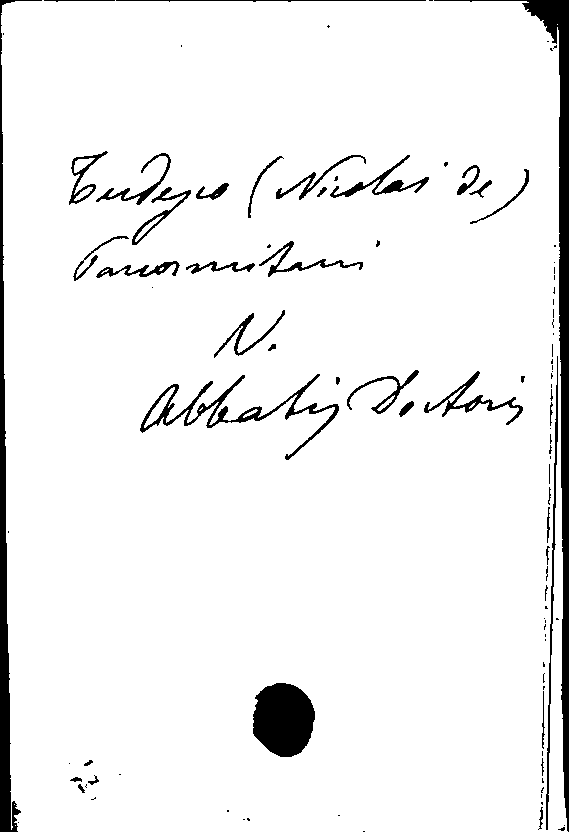 Tudesco (Nicolai de)
Panormitani
V.
Abbatis Doctoris